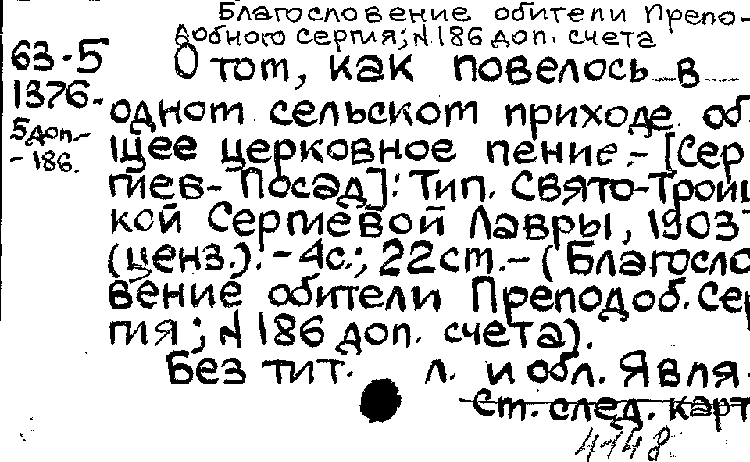 Благословение обители Препо-
добного Сергия; N 186 доп. счета
63-5
1376.
5 доп.-
-186.
О том, как повелось в
одном сельском приходе об
щее церковное пение.- [Сер
гиев-Посад]: Тип. Свято-Троиц
кой Сергиевой Лавры, 1903
(ценз.).- 4с.; 22см.- (Благосло
вение обители Преподоб. Сер
гия; N 186 доп. счета).
Без тит. л. и обл. Явля-
См. след. карт
4148